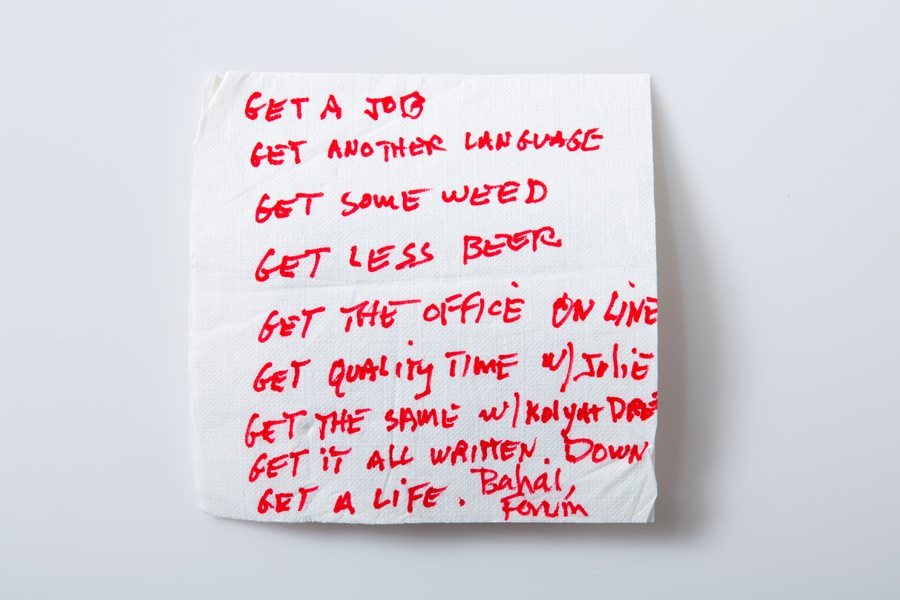 GET A JOB
GET ANOTHER LANGUAGE
GET SOME WEED
GET LESS BEER
GET THE OFFICE ON LINE
GET QUALITY TIME W/ JoliE
GET THE SAME W/
GET IT ALL WRITTEN. DOWN
GET A LIFE. Bahal,
Forum